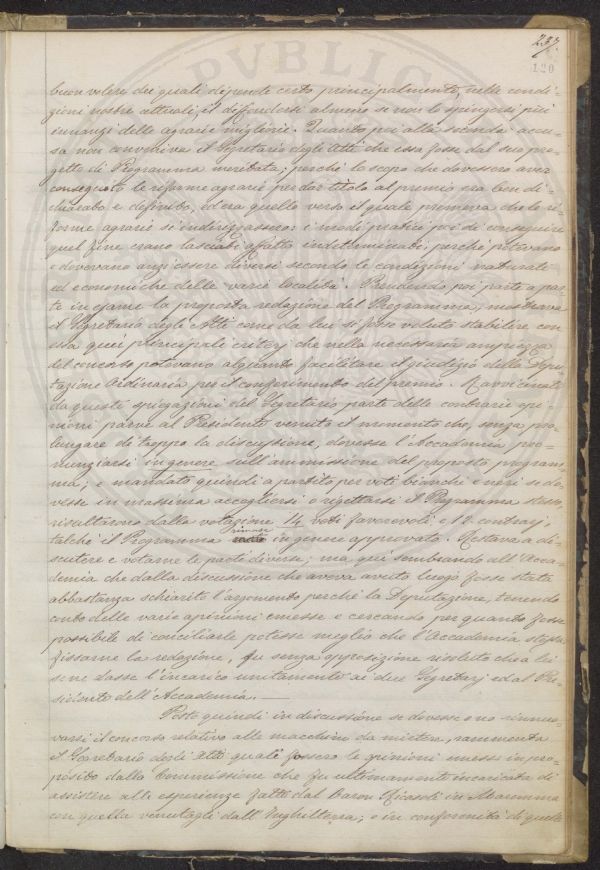 237.
120
buon volere dei quali dipende certo principalmente, nelle condi-
zioni nostre attuali, il diffondersi almeno se non lo spingersi più
innanzi delle agrarie migliorie. Quanto poi alla seconda accu-
sa non conveniva il Segretario degli Atti che essa fosse dal suo pro-
getto di Programma meritata; perchè lo scopo che dovessero aver
conseguito le riforme agrarie per dar titolo al premio sia ben di-
chiarato e definito, ed era quello verso il quale premeva che le ri-
forme agrarie si indirizzassero: i modi pratici poi di conseguire
quel fine erano lasciati affatto indeterminati; perchè potevano
e dovevano anzi essere diversi secondo le condizioni naturali
ed economiche delle varie località. Prendendo poi parte a par-
te in esame la proposta redazione del Programma, mostrava
il Segretario degli Atti come da lui si fosse voluto stabilire con
essa quei principali criterj che nella necessaria ampiezza
del concorso potevano alquanto facilitare il giudizio della Depu-
tazione Ordinaria per il conferimento del premio. Ravvicinate
da questi spiegazioni del Segretario parte delle contrarie opi-
nioni parve al Presidente venuto il momento che, senza pro-
lungare di troppo la discussione, dovesse l'Accademia pro-
nunziarsi in genere sull'ammissione del proposto program-
ma; e mandato quindi a partito per voti bianchi e neri se do-
vesse in massima accogliersi o rigettarsi il Programma stesso,
risultarono dalla votazione 14 voti favorevoli e 12 contrarj,
talchè il Programma rimase in genere approvato. Restava a di-
scutere e votarne le parti diverse; ma qui sembrando all'Acca-
demia che dalla discussione che aveva avuto luogo fosse stato
abbastanza schiarito l'argomento perchè la Deputazione, tenendo
conto delle varie opinioni emesse e cercando per quanto fosse
possibile di conciliarle potesse meglio che l'Accademia stessa
fissarne la redazione, fu senza opposizione risoluto che a lei
se ne dasse l'incarico unitamente ai due Segretarj ed al Pre-
sidente dell'Accademia. —
Posto quindi in discussione se dovesse o no rinnuo-
varsi il concorso relativo alle macchine da mietere, rammenta
il Segretario degli Atti quali fossero le opinioni emesse in pro-
posito dalla Commissione che fu ultimamente incaricata di
assistere alle esperienze fatte dal Baron Ricasoli in Maremma
con quella venutagli dall'Inghilterra; e in conformità di quelle